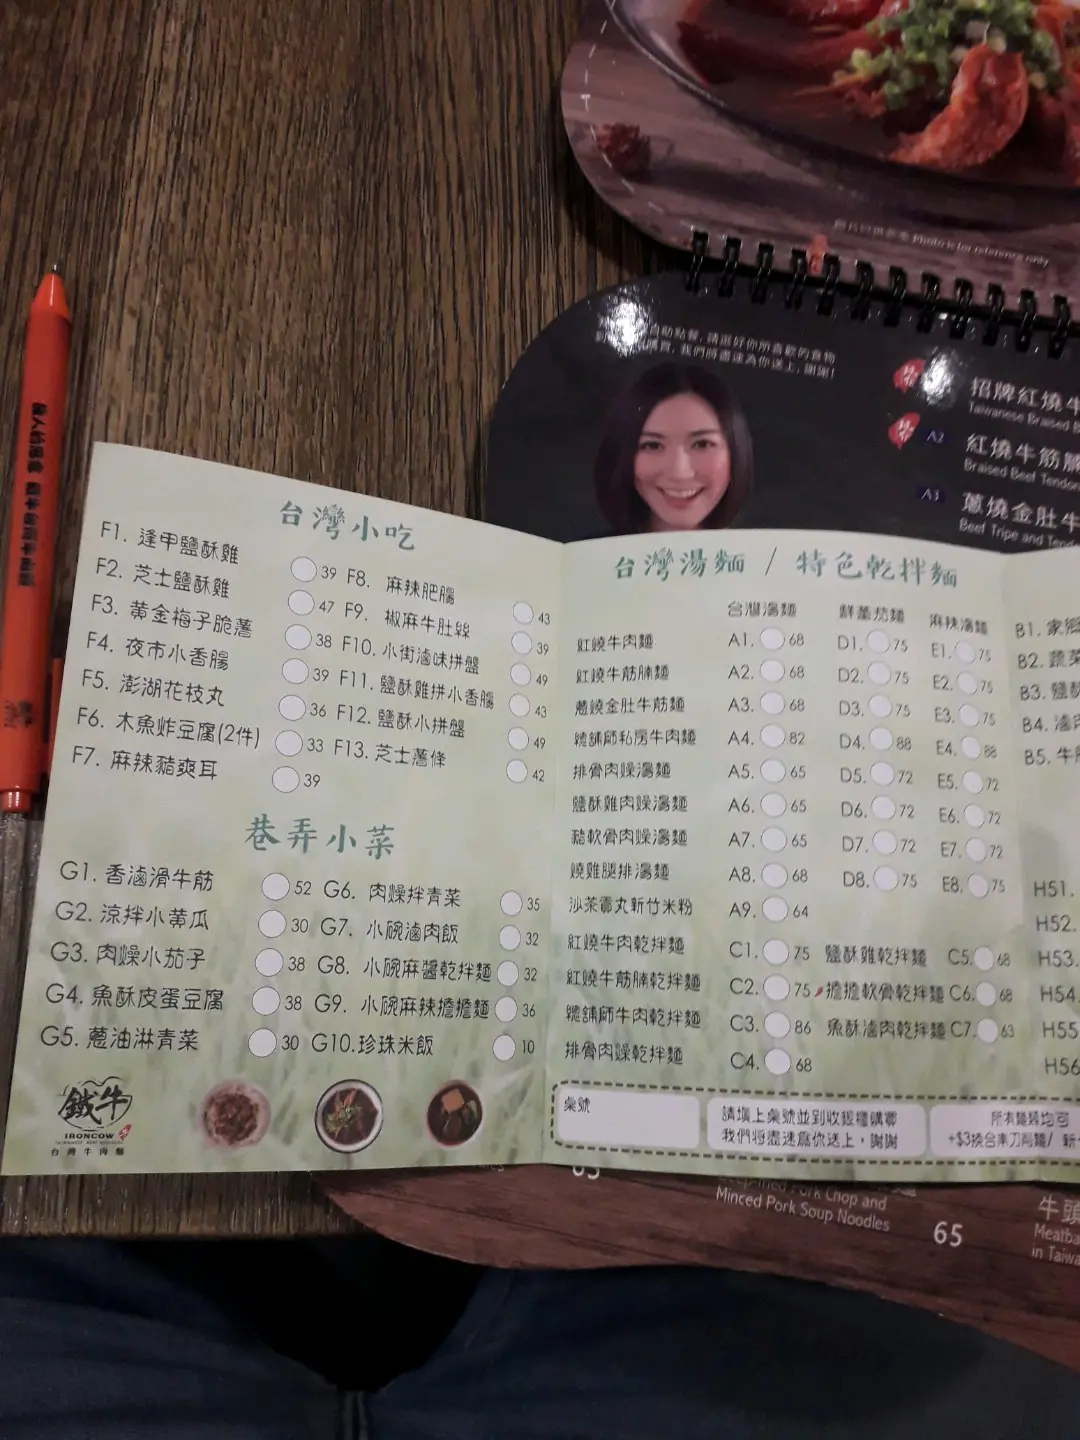 Photo is for reference only
自助點餐, 請選好你所喜歡的食物
我們將盡速為你送上, 謝謝!
招牌紅燒牛
Taiwanese Braised B
A2 紅燒牛筋腩
Braised Beef Tendon
A3 蔥燒金肚牛
Beef Tripe and Tend
台灣小吃
F1. 逢甲鹽酥雞 39
F2. 芝士鹽酥雞 47
F3. 黃金梅子脆薯 38
F4. 夜市小香腸 39
F5. 澎湖花枝丸 36
F6. 木魚炸豆腐(2件) 33
F7. 麻辣豬爽耳 39
F8. 麻辣肥腸 43
F9. 椒麻牛肚絲 39
F10. 小街滷味拼盤 49
F11. 鹽酥雞拼小香腸 43
F12. 鹽酥小拼盤 49
F13. 芝士薯條 42
巷弄小菜
G1. 香滷滑牛筋 52
G2. 涼拌小黃瓜 30
G3. 肉燥小茄子 38
G4. 魚酥皮蛋豆腐 38
G5. 蔥油淋青菜 30
G6. 肉燥拌青菜 35
G7. 小碗滷肉飯 32
G8. 小碗麻醬乾拌麵 32
G9. 小碗麻辣擔擔麵 36
G10. 珍珠米飯 10
鐵牛
IRONCOW
TAIWANESE BEEF NOODLES
台灣牛肉麵
台灣湯麵 / 特色乾拌麵
台灣湯麵 鮮蕃茄麵 麻辣湯麵
紅燒牛肉麵 A1. 68 D1. 75 E1. 75
紅燒牛筋腩麵 A2. 68 D2. 75 E2. 75
蔥燒金肚牛筋麵 A3. 68 D3. 75 E3. 75
總舖師私房牛肉麵 A4. 82 D4. 88 E4. 88
排骨肉燥湯麵 A5. 65 D5. 72 E5. 72
鹽酥雞肉燥湯麵 A6. 65 D6. 72 E6. 72
豬軟骨肉燥湯麵 A7. 65 D7. 72 E7. 72
燒雞腿排湯麵 A8. 68 D8. 75 E8. 75
沙茶貢丸新竹米粉 A9. 64
紅燒牛肉乾拌麵 C1. 75 鹽酥雞乾拌麵 C5. 68
紅燒牛筋腩乾拌麵 C2. 75 擔擔軟骨乾拌麵 C6. 68
總舖師牛肉乾拌麵 C3. 86 魚酥滷肉乾拌麵 C7. 63
排骨肉燥乾拌麵 C4. 68
B1. 家鄉
B2. 蔬菜
B3. 鹽酥
B4. 滷肉
B5. 牛
H51.
H52.
H53.
H54.
H55
H56
桌號
請填上桌號並到收銀櫃購買
我們將盡速為你送上，謝謝
所有麵類均可
+$3換台南刀削麵/ 新
Deep-fried Pork Chop and
Minced Pork Soup Noodles
65
牛頭
Meatba
in Taiwa